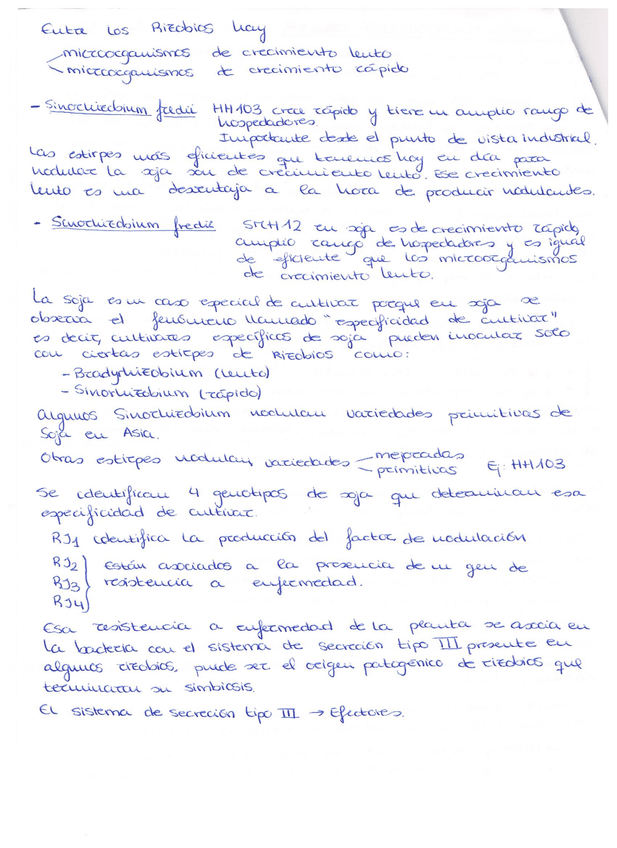 Entre los Rizobios hay
microorganismos de crecimiento lento
microorganismos de crecimiento rápido
- Sinorhizobium fredii HH103 crece rápido y tiene un amplio rango de
hospedadores.
Importante desde el punto de vista industrial.
Las estirpes más eficientes que tenemos hoy en día para
nodular la soja son de crecimiento lento. Ese crecimiento
lento es una desventaja a la hora de producir nodulantes.
- Sinorhizobium fredii SMH12 en soja es de crecimiento rápido,
amplio rango de hospedadores y es igual
de eficiente que los microorganismos
de crecimiento lento.
La soja es un caso especial de cultivar porque en soja se
observa el fenómeno llamado "especificidad de cultivar"
es decir, cultivares específicos de soja pueden inocular solo
con ciertas estirpes de Rizobios como:
- Bradyrhizobium (lento)
- Sinorhizobium (rápido)
Algunos Sinorhizobium nodulan variedades primitivas de
Soja en Asia.
Otras estirpes nodulan, variedades mejoradas
primitivas Ej: HH103
Se identifican 4 genotipos de soja que determinan esa
especificidad de cultivar.
RJ1 identifica la producción del factor de nodulación
RJ2
RJ3
RJ4
Están asociados a la presencia de un gen de
resistencia a enfermedad.
Esa resistencia a enfermedad de la planta se asocia en
la bacteria con el sistema de secreción tipo III presente en
algunos rizobios, puede ser el origen patogénico de rizobios que
terminaran su simbiosis.
El sistema de secreción tipo III → Efectores.